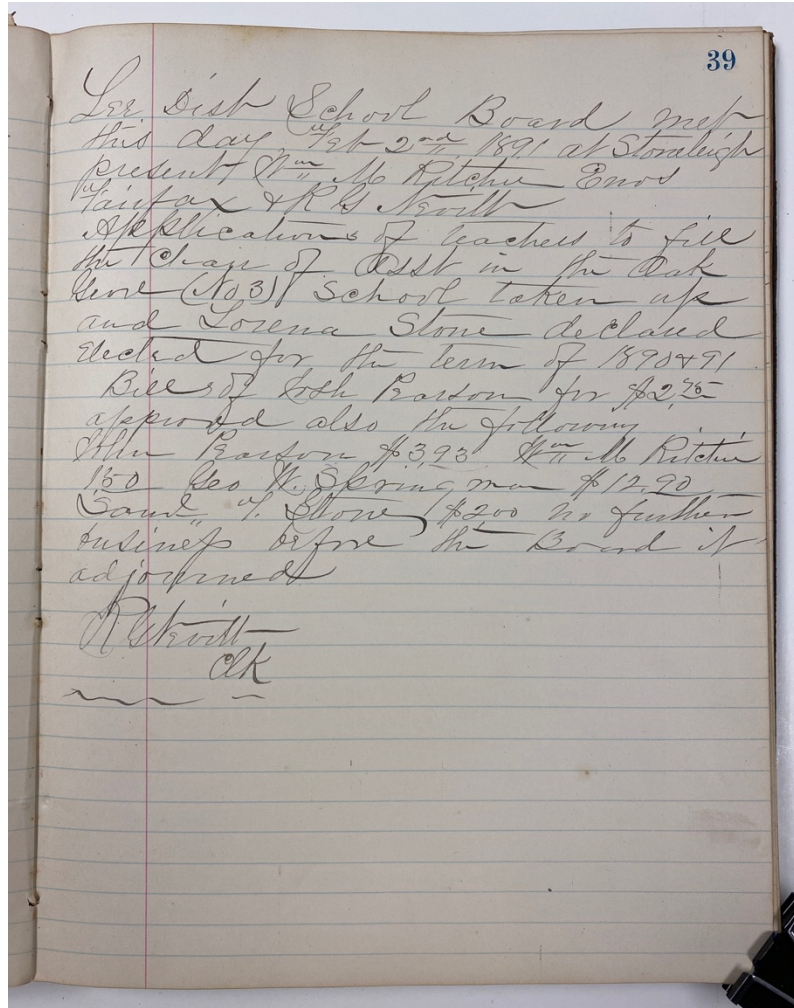 39
Lee Dist School Board met
this day, Feb 2nd 1891 at Stoneleigh
present Wm M Ritchie Enos
Fairfax & R G Nevitt
Applications of teachers to fill
the Chair of Asst in the Oak
Grove (No 3) School taken up
and Lorena Stone declared
elected for the term of 1890 & 91
Bill of Josh Pearson for $2.75
approved also the following
John Pearson $3.93 Wm M Ritchie
1.50 Geo W. Springman $12.90
Saml F. Stone $2.00 no further
business before the Board it
adjourned
R G Nevitt
Clk